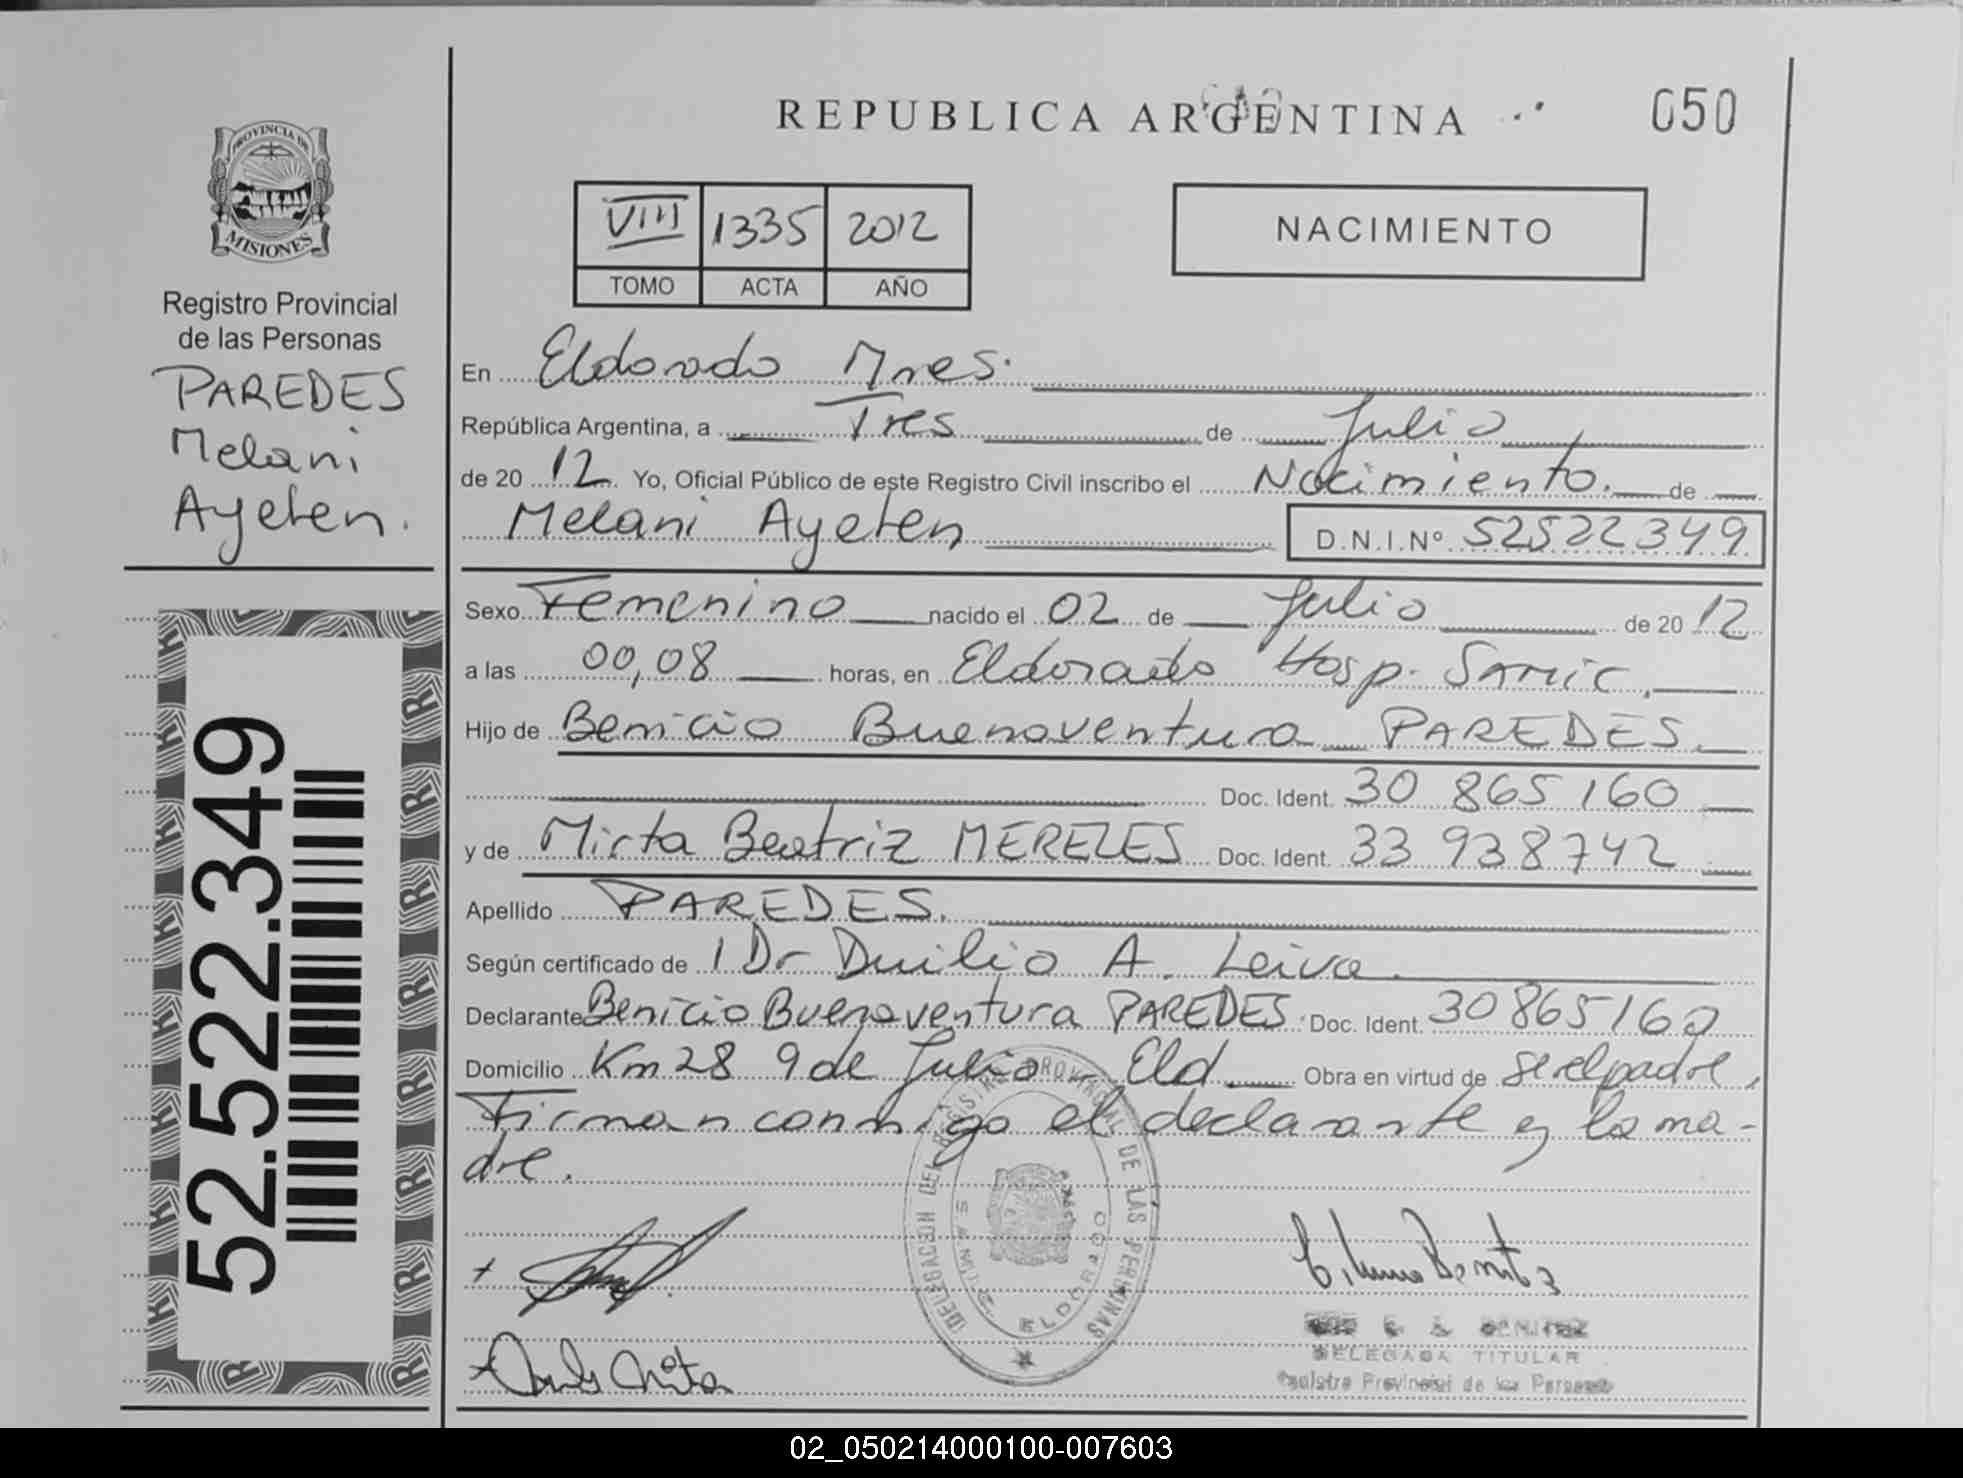 REPUBLICA ARGENTINA
050
PROVINCIA DE
MISIONES
Registro Provincial
de las Personas
PAREDES
Melani
Ayelen.
VIII 1335 2012
TOMO ACTA AÑO
NACIMIENTO
En Eldorado Mnes.
República Argentina, a Tres de Julio
de 2012 Yo, Oficial Público de este Registro Civil inscribo el Nacimiento. de
Melani Ayelen D.N.I.Nº 52522349
Sexo Femenino nacido el 02 de Julio de 2012
a las 00,08 horas, en Eldorado Hosp. SAMIC.
Hijo de Benicio Buenaventura PAREDES
Doc. Ident. 30 865 160
y de Mirta Beatriz MEREZES Doc. Ident. 33 938 742
Apellido PAREDES.
Según certificado de 1 Dr Duilio A. Leiva.
Declarante Benicio Buenaventura PAREDES. Doc. Ident. 30865160
Domicilio Km 28 9 de Julio Eld Obra en virtud de ser el padre,
Firman conmigo el declarante y la ma-
dre.
52.522.349
DELEGACION DEL REGISTRO PROVINCIAL DE LAS PERSONAS
SAMIC ELDORADO
BENITEZ
DELEGADA TITULAR
Provincial de las Personas
02_050214000100-007603